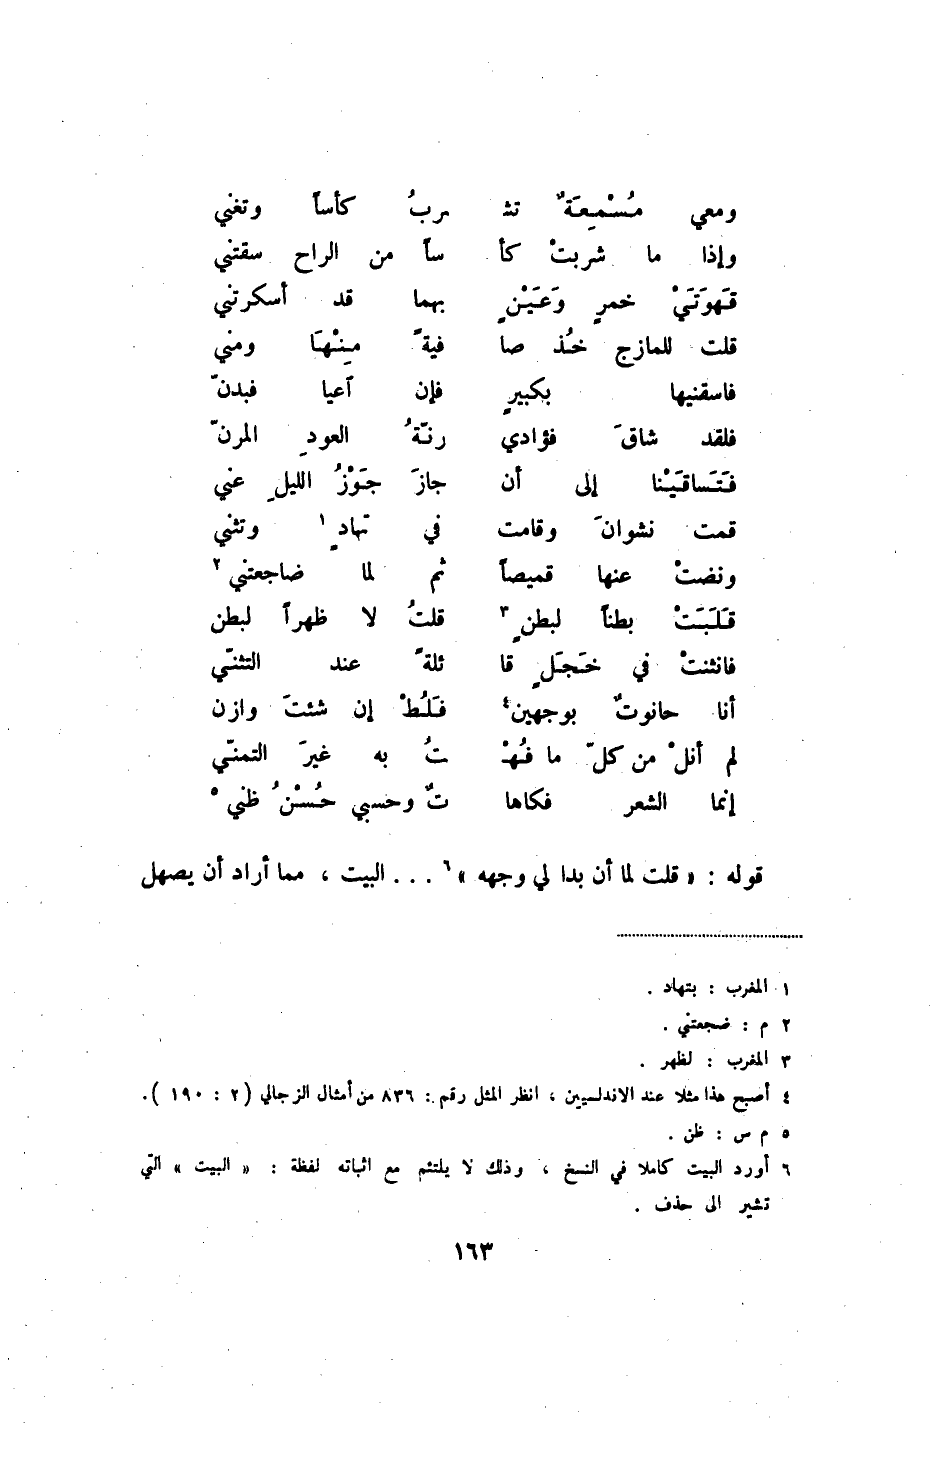 ومعي مُسْمِعَةٌ تشـ ـربُ كأساً وتغني
وإذا ما شربتْ كأ ساً من الراح سقتني
قَهوَتَيْ خمرٍ وَعَيْنٍ بهما قد أسكرتني
قلت للمازج خُذ صا فيةً مِنْهَا ومني
فاسقنيها بكبيرٍ فإن أعيا فبدنّ
فلقد شاقَ فؤادي رنّةُ العودِ المرنّ
فَتَساقَيْنا إلى أن جازَ جَوْزُ الليلِ عني
قمت نشوانَ وقامت في تهادٍ ١ وتثني
ونضتْ عنها قميصاً ثم لما ضاجعتني ٢
قَلَبَتْ بطناً لبطنٍ ٣ قلتُ لا ظهراً لبطن
فانثنتْ في خَجَلٍ قا ئلةً عند التثنّي
أنا حانوتٌ بوجهين ٤ فَلُطْ إن شئتَ وازن
لم أنلْ من كلّ ما فُهْـ ـتُ به غيرَ التمنّي
إنما الشعر فكاها تٌ وحسبي حُسْنُ ظني ٥
قوله : « قلت لما أن بدا لي وجهه » ٦ . . . البيت ، مما أراد أن يصهل
١ المغرب : بتهاد .
٢ م : ضجعتني .
٣ المغرب : لظهر .
٤ أصبح هذا مثلا عند الاندلسيين ، انظر المثل رقم : ٨٣٦ من أمثال الزجالي (٢ : ١٩٠ ) .
٥ م س : ظن .
٦ أورد البيت كاملا في النسخ ، وذلك لا يلتئم مع اثباته لفظة : « البيت » التي
تشير الى حذف .
١٦٣